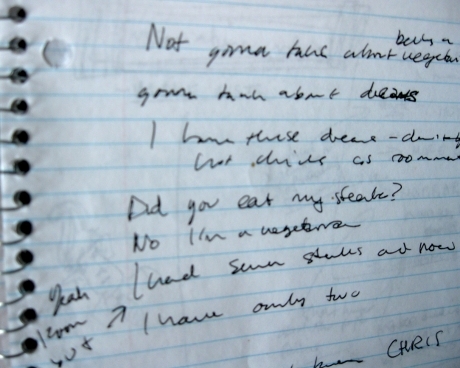 being a
Not gonna talk about vegetar
gonna talk about dreams
I have these dreams -
hot chicks as roomm
Did you eat my steak?
No I'm a vegetarian
I had seven steaks and now
I have only two
Yeah
I know
CHRIS